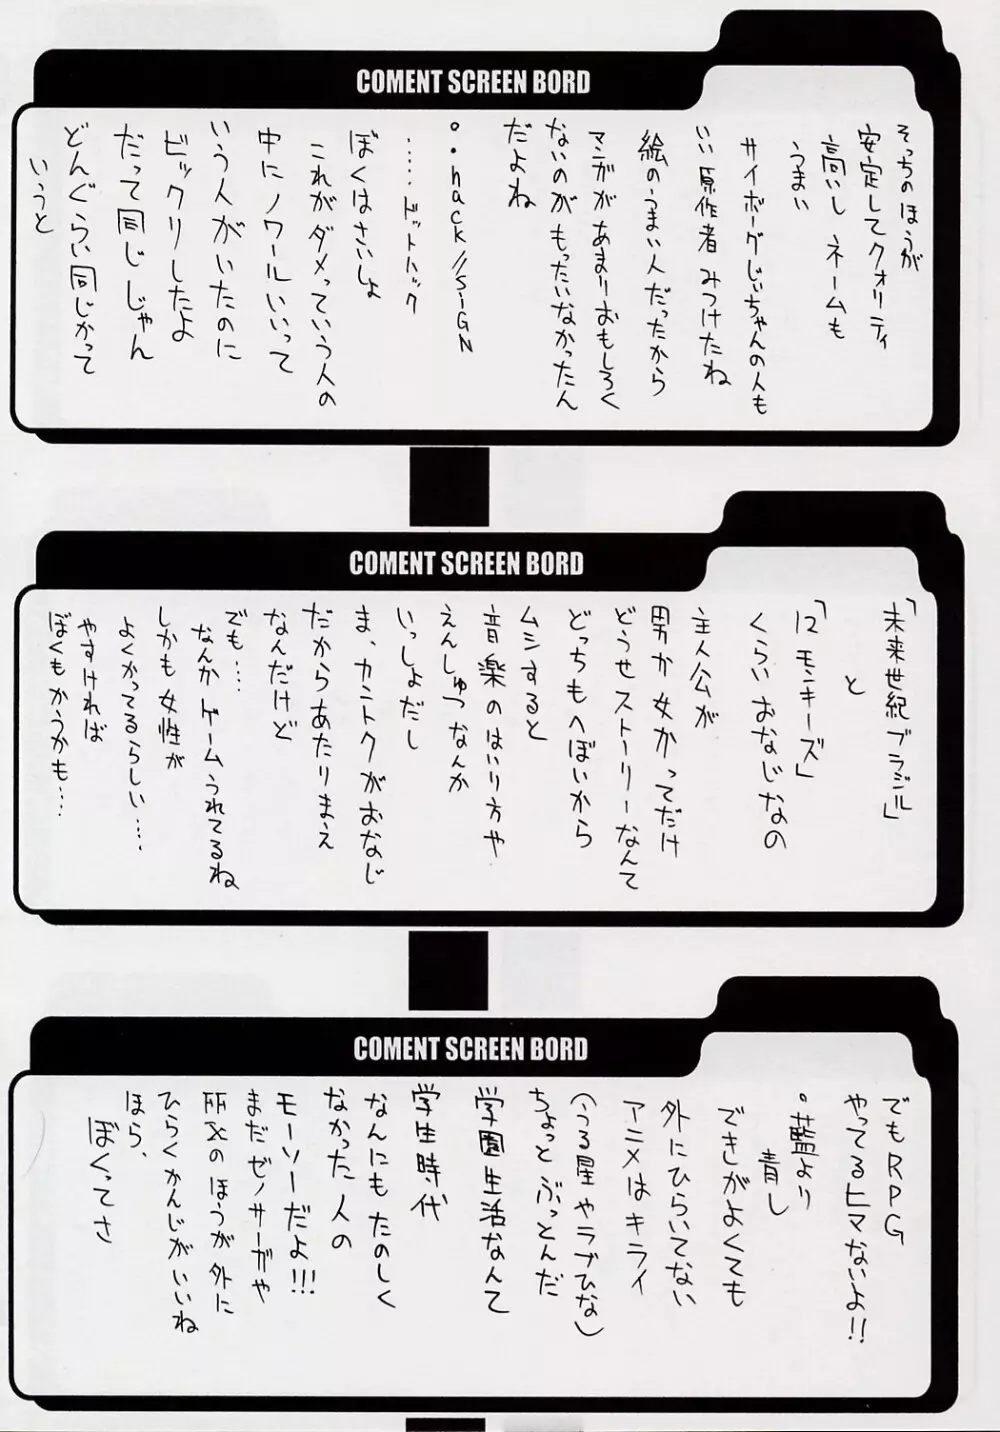 COMENT SCREEN BORD
そっちのほうが
安定してクォリティ
高いし ネームも
うまい
サイボーグじいちゃんの人も
いい原作者 みつけたね
絵のうまい人だったから
マンガがあまりおもしろく
ないのがもったいなかったん
だよね
。.hack//SiGN
‥‥‥ドットハック
ぼくはさいしょ
これがダメっていう人の
中にノワールいいって
いう人がいたのに
ビックリしたよ
だって同じじゃん
どんぐらい同じかって
いうと
COMENT SCREEN BORD
「未来世紀ブラジル」
と
「12モンキーズ」
くらいおなじなの
主人公が
男か女かってだけ
どうせストーリーなんて
どっちもへぼいから
ムシすると
音楽のはいり方や
えんしゅつなんか
いっしょだし
ま、カントクがおなじ
だからあたりまえ
なんだけど
でも‥‥
なんかゲームうれてるね
しかも女性が
よくかってるらしい‥‥
やすければ
ぼくもかうかも‥‥
COMENT SCREEN BORD
でもRPG
やってるヒマないよ!!
。藍より
青し
できがよくても
外にひらいてない
アニメはキライ
(うる星やラブひな)
ちょっとぶっとんだ
学園生活なんて
学生時代
なんにもたのしく
なかった人の
モーソーだよ!!!
まだゼノサーガや
のほうが外に
ひらくかんじがいいね
ほら、
ぼくってさ